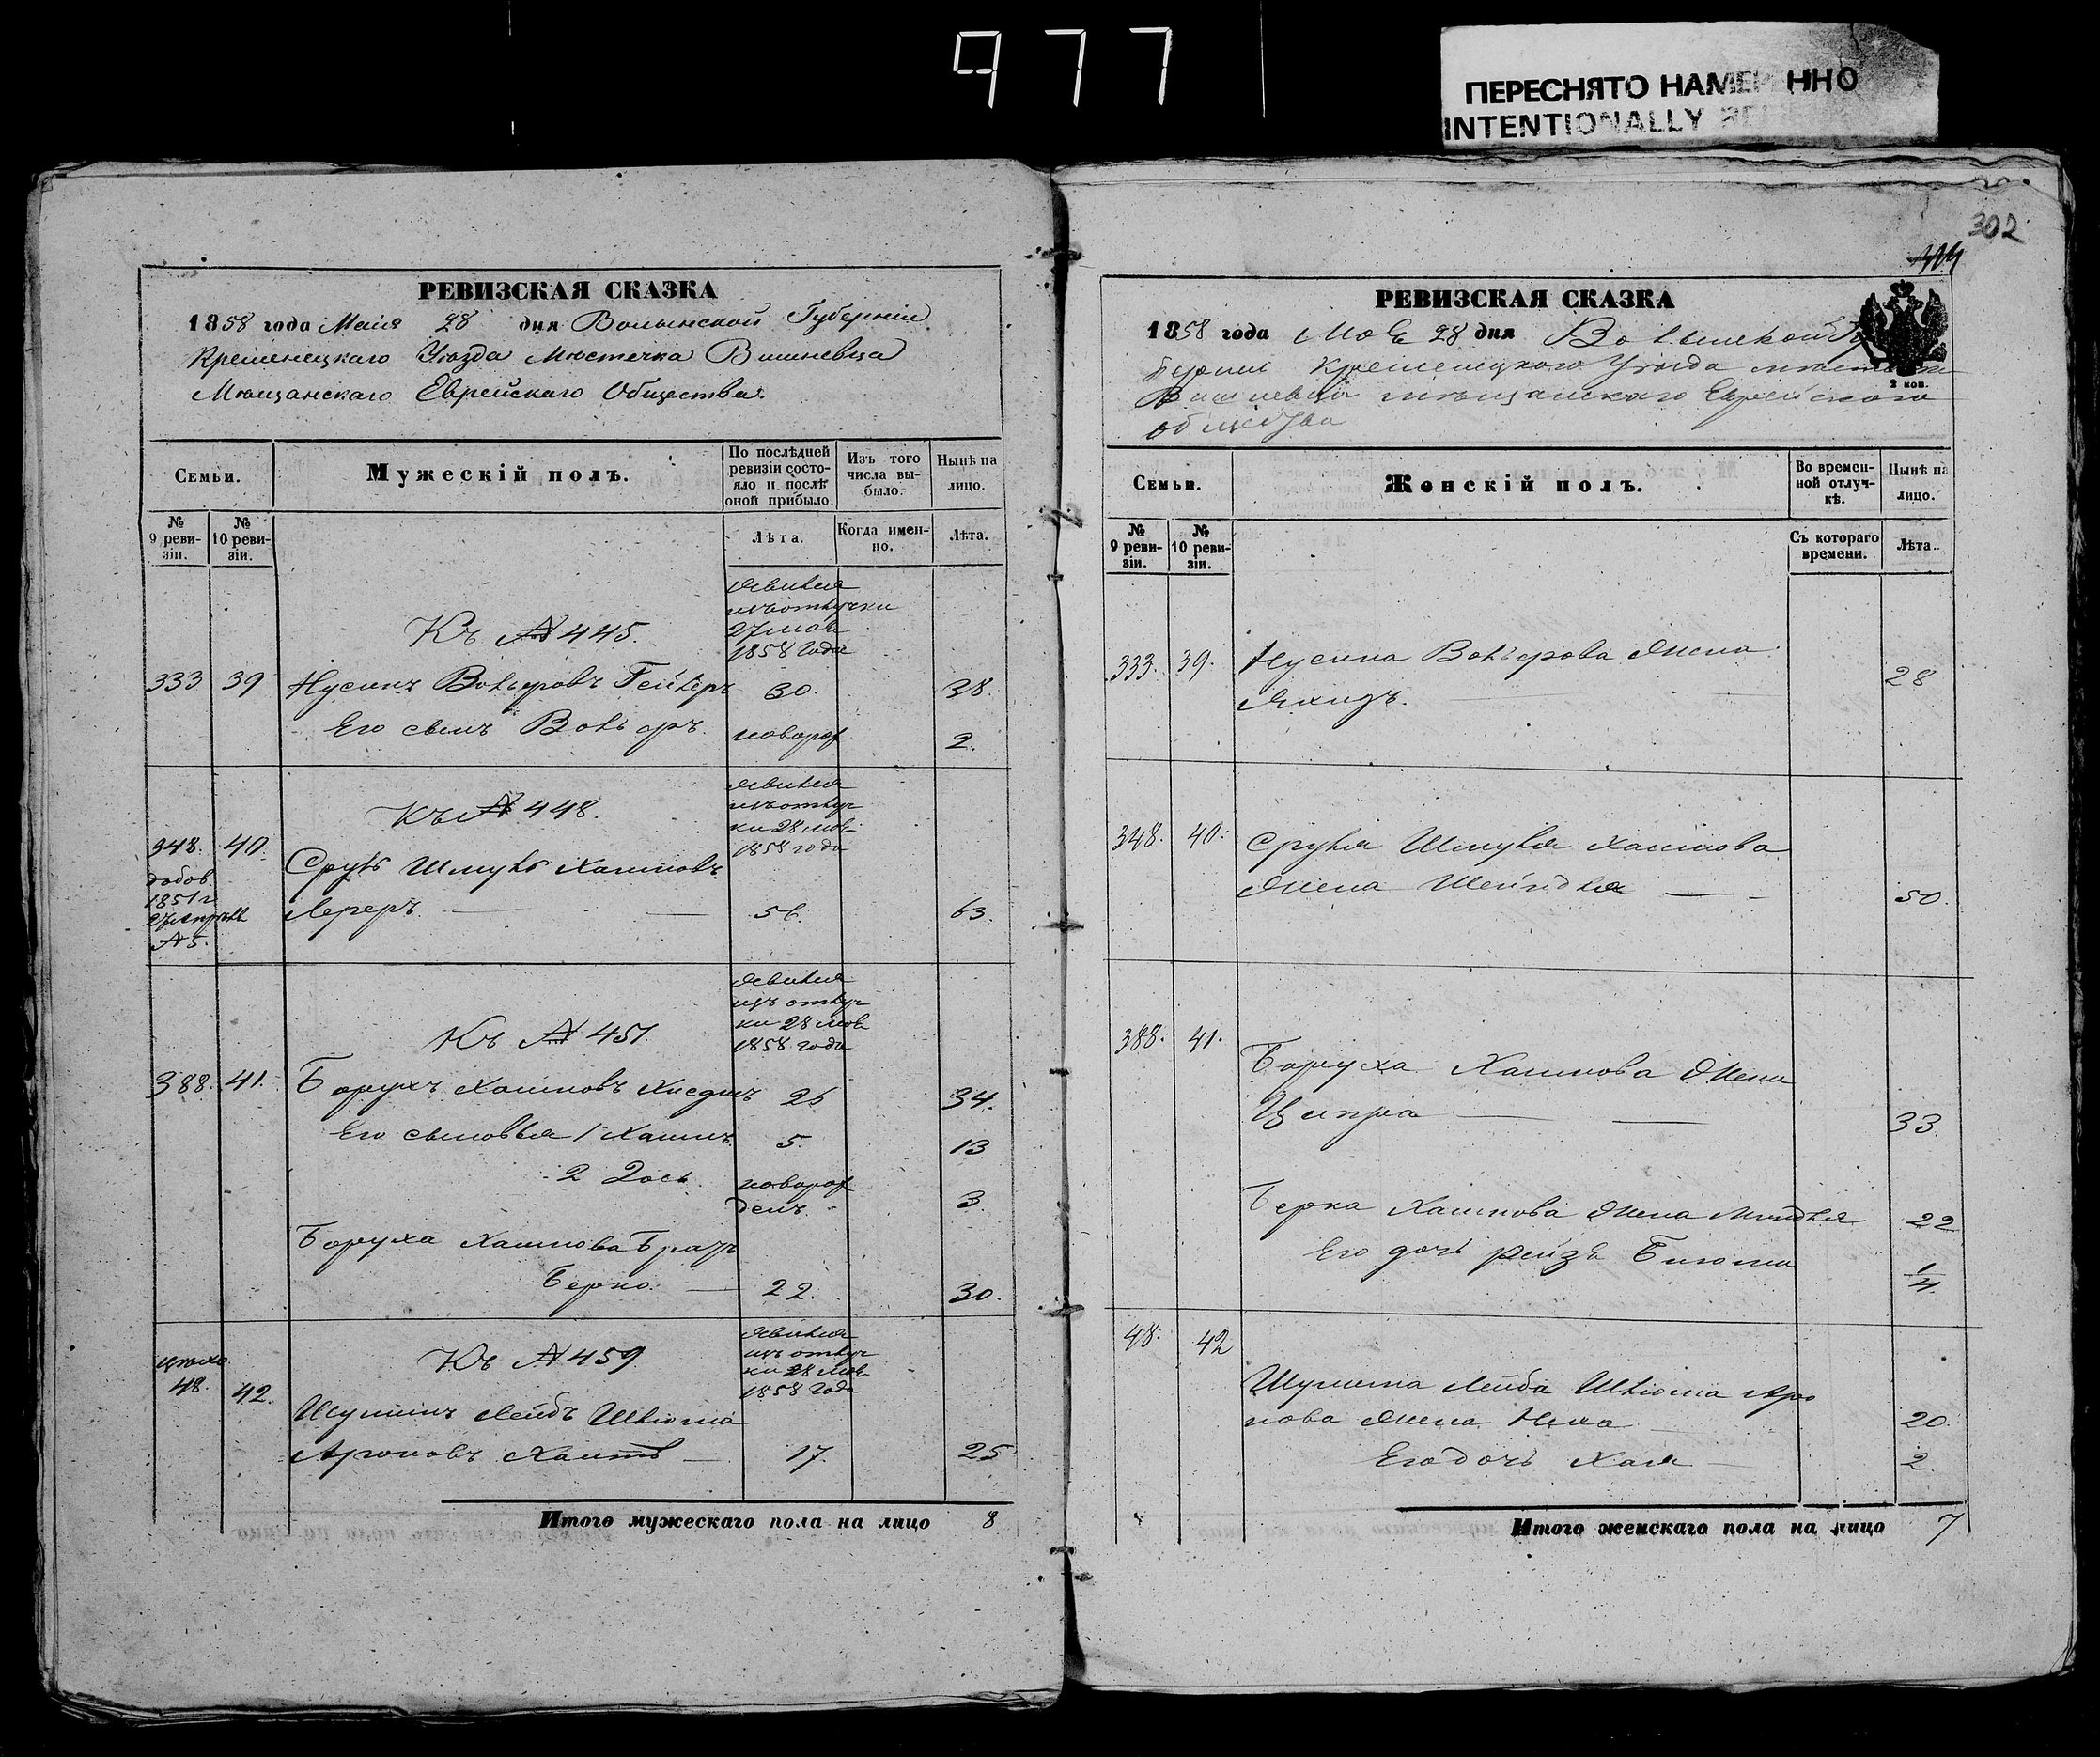 977
ПЕРЕСНЯТО НАМЕР ННО
INTENTIONALLY
РЕВИЗСКАЯ СКАЗКА
1858 года Маія 28 дня Волынской Губерніи
Кременецкаго Уѣзда Мѣстечка Вишневца
Мѣщанскаго Еврейскаго Общества.
Семьи.
Мужескій полъ.
По послѣдней ревизіи состояло и послѣ оной прибыло.
Изъ того числа выбыло.
Нынѣ на лицо.
№ 9 ревизіи.
№ 10 ревизіи.
Лѣта.
Когда именно.
Лѣта.
Къ № 445.
явился
изъ отлучки
27 мая
1858 года
333 39 Нусинъ Вольфовъ 30. 38.
Его сынъ Вольфъ. новорож 2.
Къ № 448.
явился
изъ отлуч
ки 28 мая
1858 года
348. 40. Сруль Шмуль Хаимовъ
добов
1851 г
27 Апрѣля
№ 5.
Лереръ 56. 63.
Къ № 451.
явился
изъ отлуч
ки 28 мая
1858 года
388. 41. Борухъ Хаимовъ 26 34.
Его сыновья 1 Хаимъ 5. 13
2 новорож
денъ 3.
Боруха Хаимова братъ
Берко. 22. 30.
Къ № 459
явился
изъ отлуч
ки 28 мая
1858 года
48. 42.
Шулимъ Лейбъ
Ароновъ 17. 25
Итого мужескаго пола на лицо 8
302
РЕВИЗСКАЯ СКАЗКА
1858 года Мая 28 дня Волынской Гу
берніи Кременецкаго Уѣзда мѣстечка
Вишневца мѣщанскаго Еврейскаго
общества
2 коп.
Семьи.
Женскій полъ.
Во временной отлучкѣ.
Нынѣ на лицо.
№ 9 ревизіи.
№ 10 ревизіи.
Съ котораго времени.
Лѣта.
333. 39. Нусина Вольфова жена
28
348. 40. Сруля Шмуля Хаимова
жена Шейндля 50.
388. 41.
Боруха Хаимова жена
Ципра 33
Берка Хаимова жена Миндля 22
Его дочь Рейзя 1/4
48. 42
Шулима Лейба Аро
нова жена 20.
Его дочь Хая 2
Итого женскаго пола на лицо 7